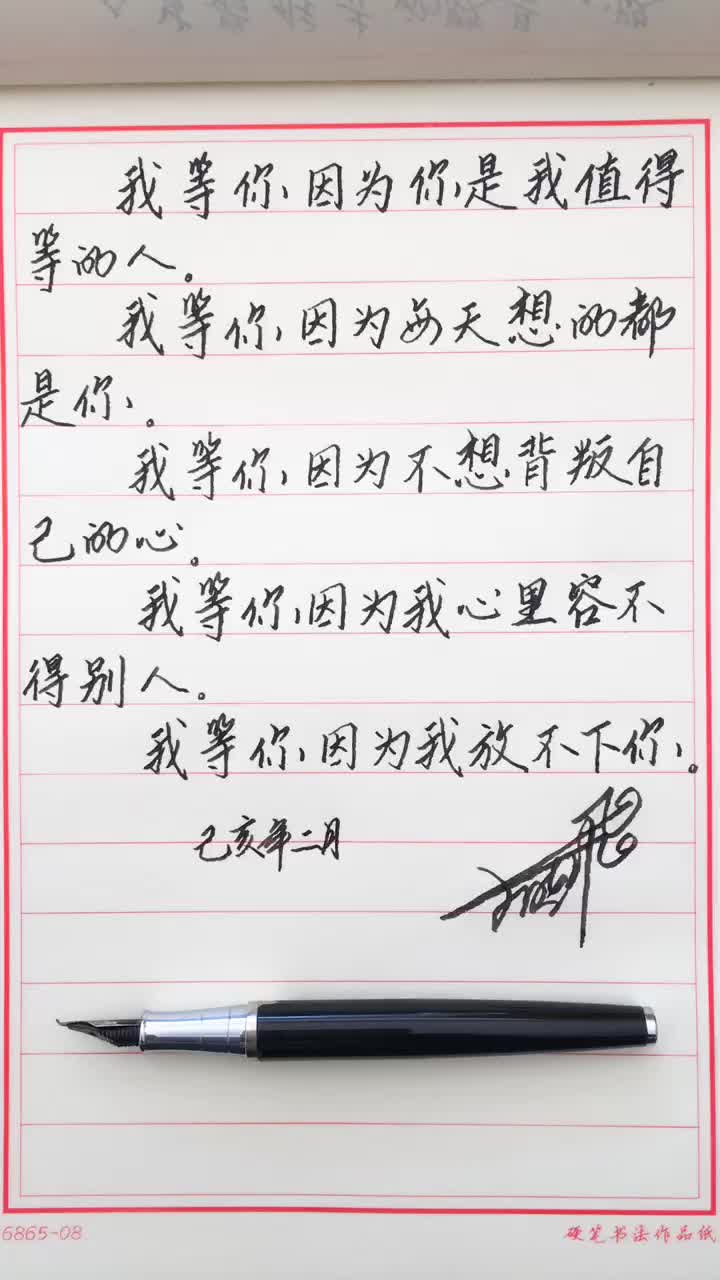 我等你,因为你是我值得
等的人。
我等你,因为每天想的都
是你。
我等你,因为不想背叛自
己的心。
我等你,因为我心里容不
得别人。
我等你,因为我放不下你。
己亥年二月
6865-08
硬笔书法作品纸